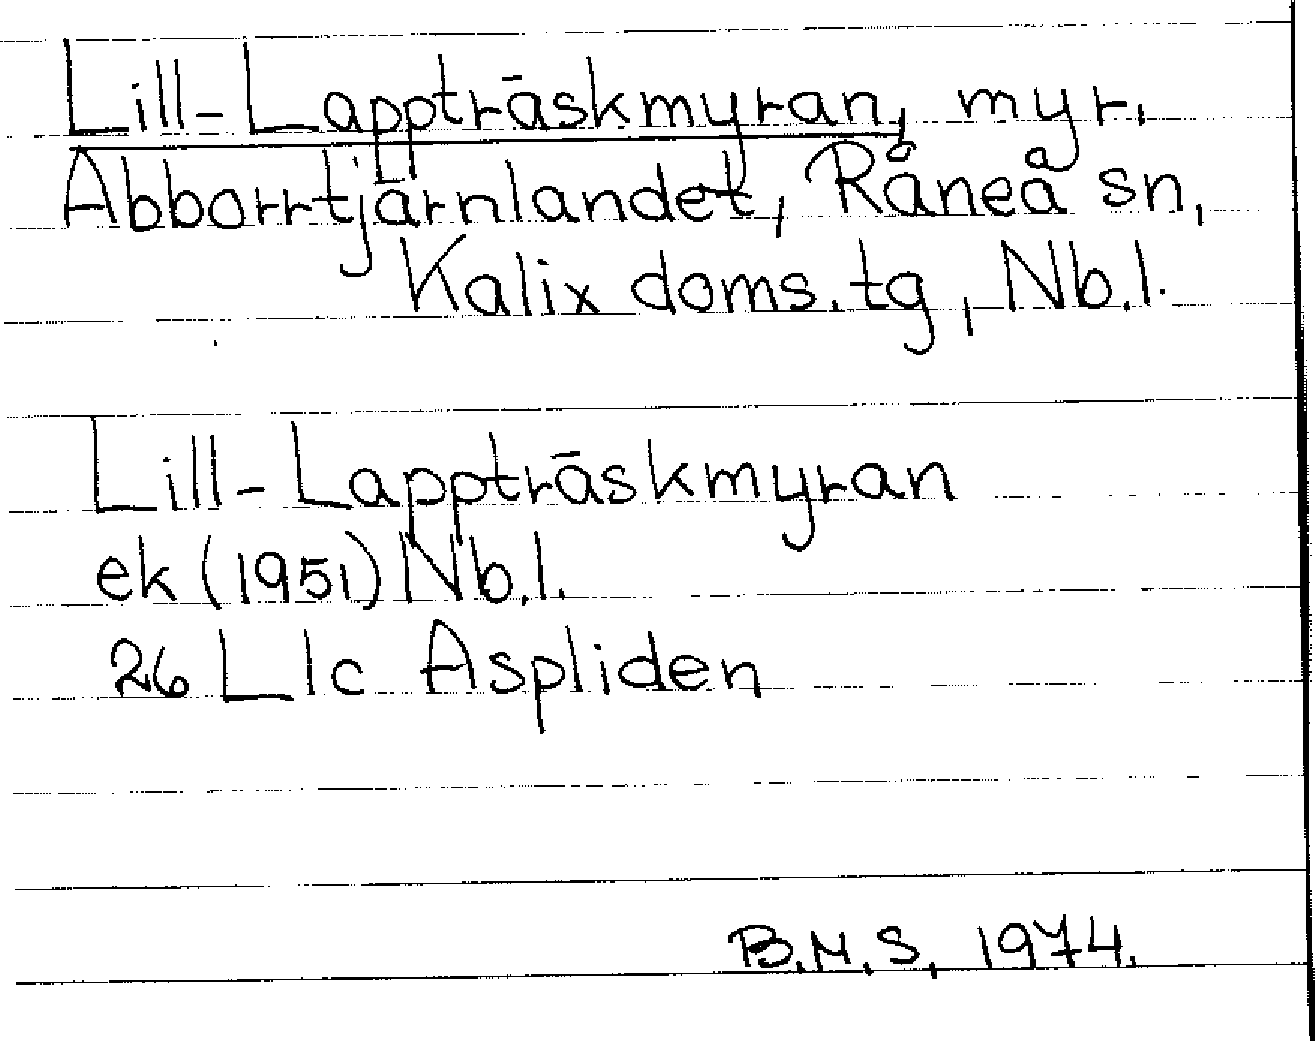 Lill-Lappträskmyran, myr,
Abborrtjärnlandet, Råneå sn,
Kalix doms.tg, Nb.l.
Lill-Lappträskmyran
ek (1951) Nb.l.
26 L 1c Aspliden
B.M.S, 1974.